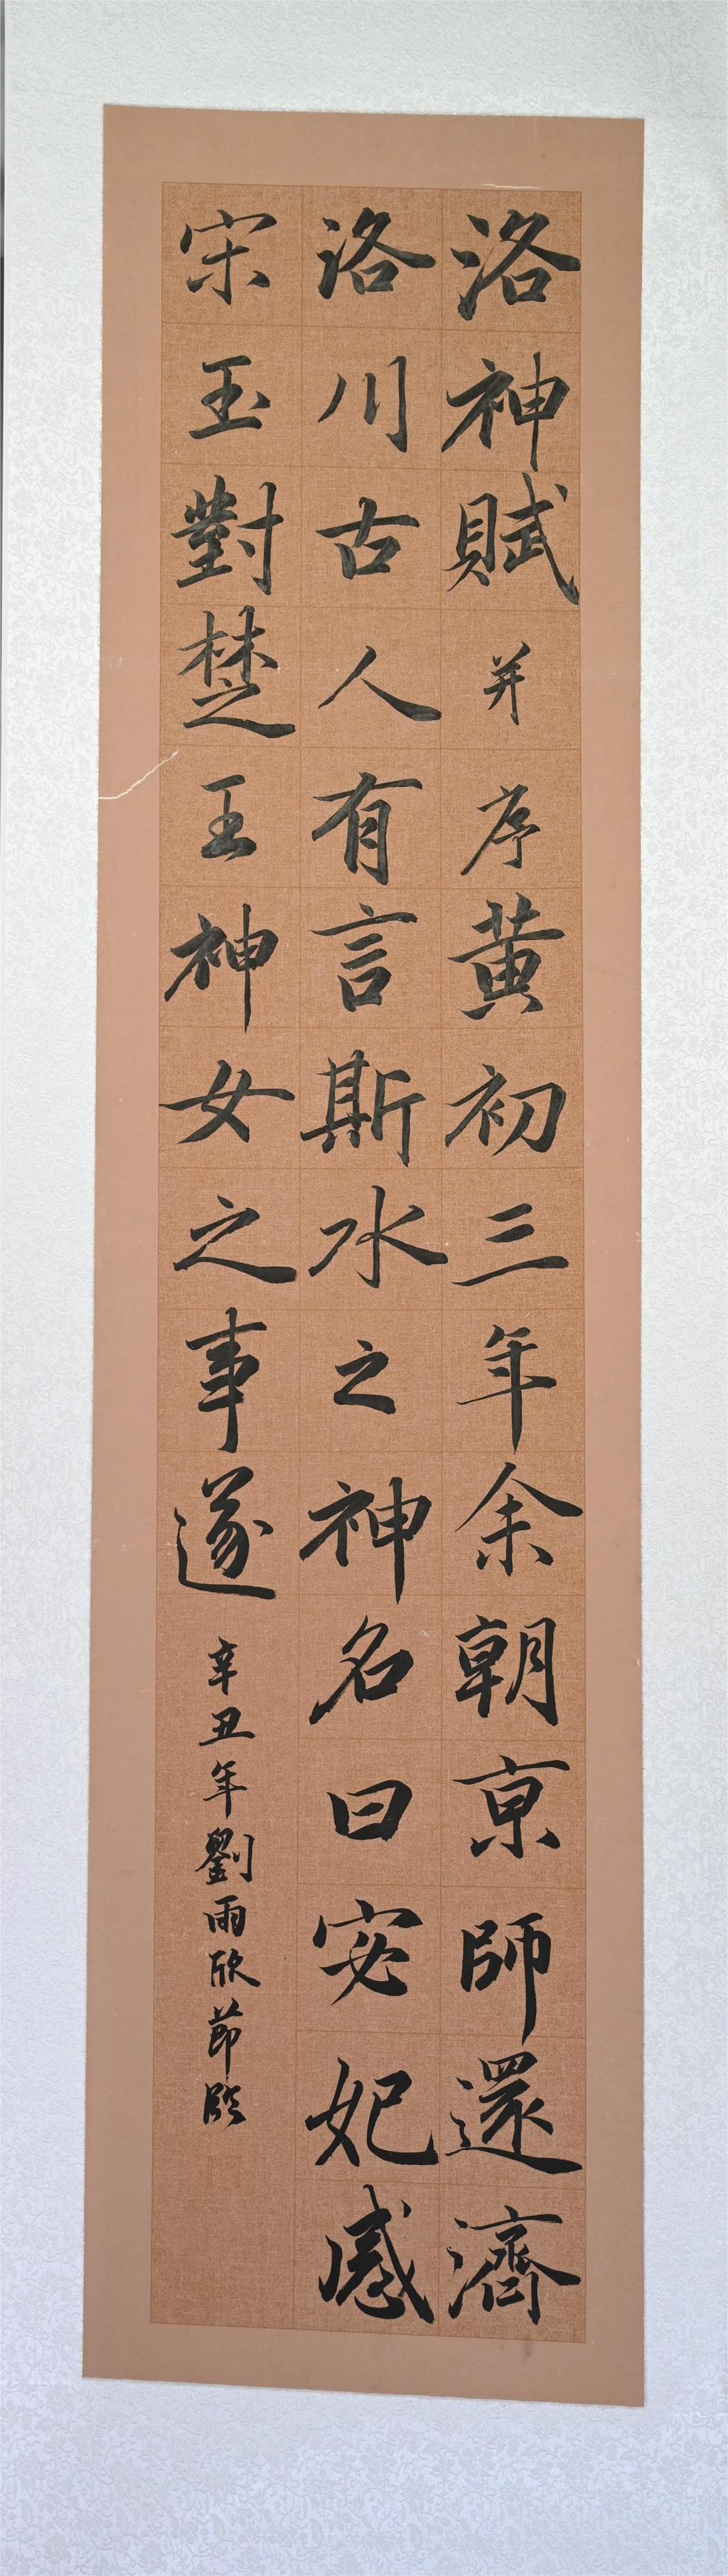 洛神賦并序黄初三年余朝京師還濟
洛川古人有言斯水之神名曰宓妃感
宋玉對楚王神女之事遂
辛丑年劉雨欣節臨